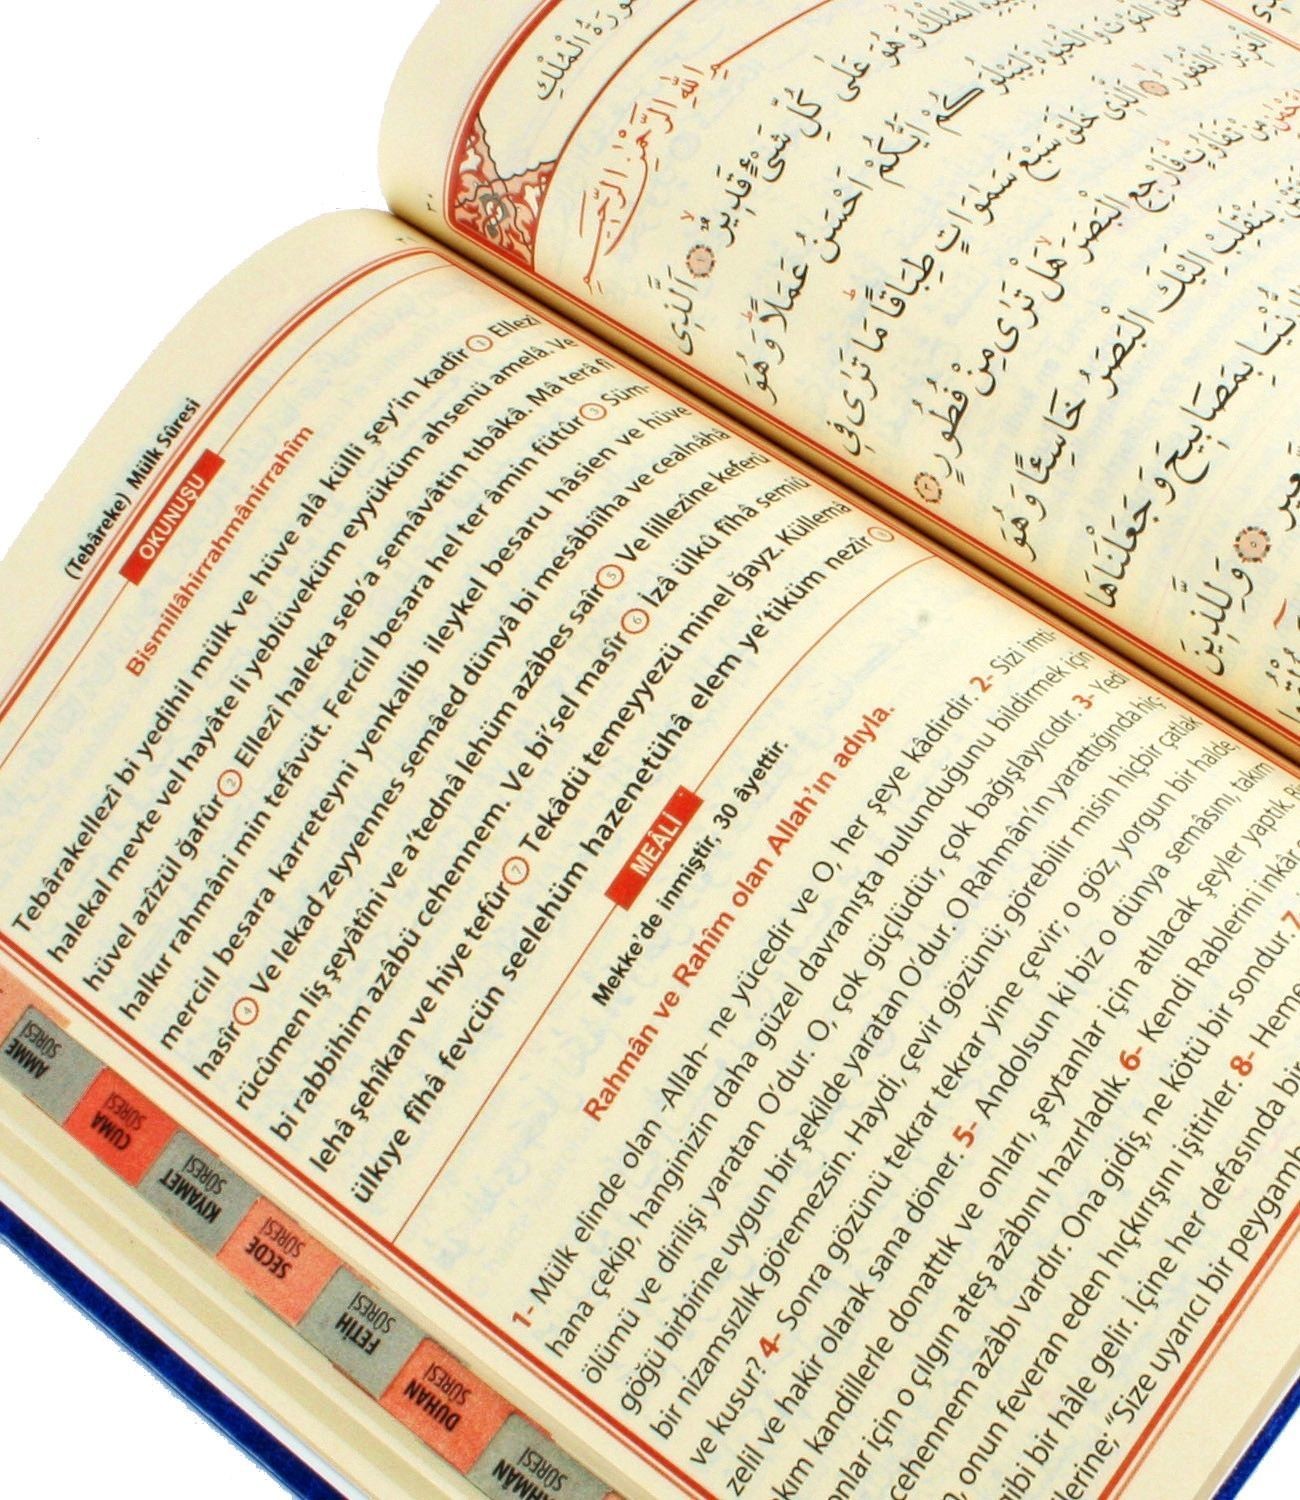 (Tebâreke) Mülk Sûresi
OKUNUŞU
Bismillâhirrahmânirrahîm
Tebârakellezî bi yedihil mülk ve hüve alâ külli şey’in kadîr 1 Ellezî
halekal mevte vel hayâte li yeblüveküm eyyüküm ahsenü amelâ. Ve
hüvel azîzül ğafûr 2 Ellezî haleka seb’a semâvâtin tıbâkâ. Mâ terâ fî
halkır rahmâni min tefâvüt. Ferciıl besara hel ter âmin fütür 3 Süm-
merciıl besara karreteyni yenkalib ileykel besaru hâsien ve hüve
hasîr 4 Ve lekad zeyyennes semâed dünyâ bi mesâbiîha ve cealnâhâ
rücûmen liş şeyâtîni ve a’tednâ lehüm azâbes saîr 5 Ve lillezîne keferû
bi rabbihim azâbü cehennem. Ve bi’sel masîr 6 İzâ ülkû fîhâ semiû
lehâ şehîkan ve hiye tefûr 7 Tekâdü temeyyezü minel ğayz. Küllemâ
ülkıye fîhâ fevcün seelehüm hazenetühâ elem ye’tiküm nezîr 8
MEÂLİ
Mekke’de inmiştir, 30 âyettir.
Rahmân ve Rahîm olan Allah’ın adıyla.
1- Mülk elinde olan -Allah- ne yücedir ve O, her şeye kâdirdir. 2- Sizi imti-
hana çekip, hanginizin daha güzel davranışta bulunduğunu bildirmek için
ölümü ve dirilişi yaratan O’dur. O, çok güçlüdür, çok bağışlayıcıdır. 3- Yedi
göğü birbirine uygun bir şekilde yaratan O’dur. O Rahmân’ın yarattığında hiç-
bir nizamsızlık göremezsin. Haydi, çevir gözünü; görebilir misin hiçbir çatlak
ve kusur? 4- Sonra gözünü tekrar tekrar yine çevir; o göz, yorgun bir halde,
zelil ve hakir olarak sana döner. 5- Andolsun ki biz o dünya semâsını, takım
kım kandillerle donattık ve onları, şeytanlar için atılacak şeyler yaptık.
onlar için o çılgın ateş azabını hazırladık. 6- Kendi Rablerini inkâr
cehennem azâbı vardır. Ona gidiş, ne kötü bir sondur. 7
onun feveran eden hıçkırışını işitirler. 8- Heme
gibi bir hâle gelir. İçine her defasında bir
lerine; “Size uyarıcı bir peygamb
AMME SÛRESİ
CUMA SÛRESİ
KIYAMET SÛRESİ
SECDE SÛRESİ
FETİH SÛRESİ
DUHAN SÛRESİ
HMÂN SÛRESİ
سُورَةُ الْمُلْكِ
بِسْمِ اللّٰهِ الرَّحْمٰنِ الرَّحِيمِ
الْمُلْكُ وَهُوَ عَلٰى كُلِّ شَىْءٍ قَدِيرٌ ١ اَلَّذِى
الْمَوْتَ وَالْحَيٰوةَ لِيَبْلُوَكُمْ اَيُّكُمْ اَحْسَنُ عَمَلًا وَهُوَ
الْعَزِيزُ الْغَفُورُ ٢ اَلَّذِى خَلَقَ سَبْعَ سَمٰوَاتٍ طِبَاقًا مَا تَرٰى فِى
مِنْ تَفَاوُتٍ فَارْجِعِ الْبَصَرَ هَلْ تَرٰى مِنْ فُطُورٍ ٣
يَنْقَلِبْ اِلَيْكَ الْبَصَرُ خَاسِئًا وَهُوَ
بِمَصَابِيحَ وَجَعَلْنَاهَا
٥ وَلِلَّذِينَ